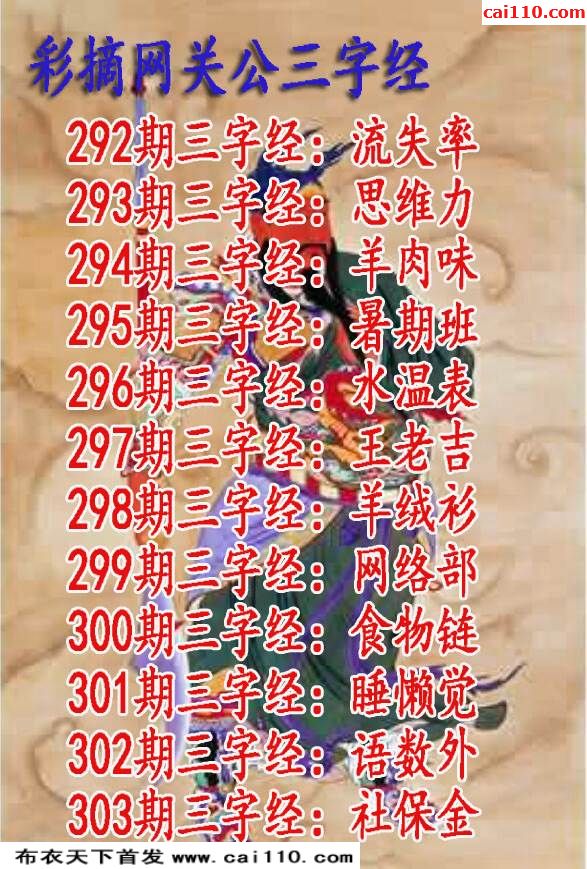 cai110.com
彩摘网关公三字经
292期三字经：流失率
293期三字经：思维力
294期三字经：羊肉味
295期三字经：暑期班
296期三字经：水温表
297期三字经：王老吉
298期三字经：羊绒衫
299期三字经：网络部
300期三字经：食物链
301期三字经：睡懒觉
302期三字经：语数外
303期三字经：社保金
布衣天下首发 www.cai110.com